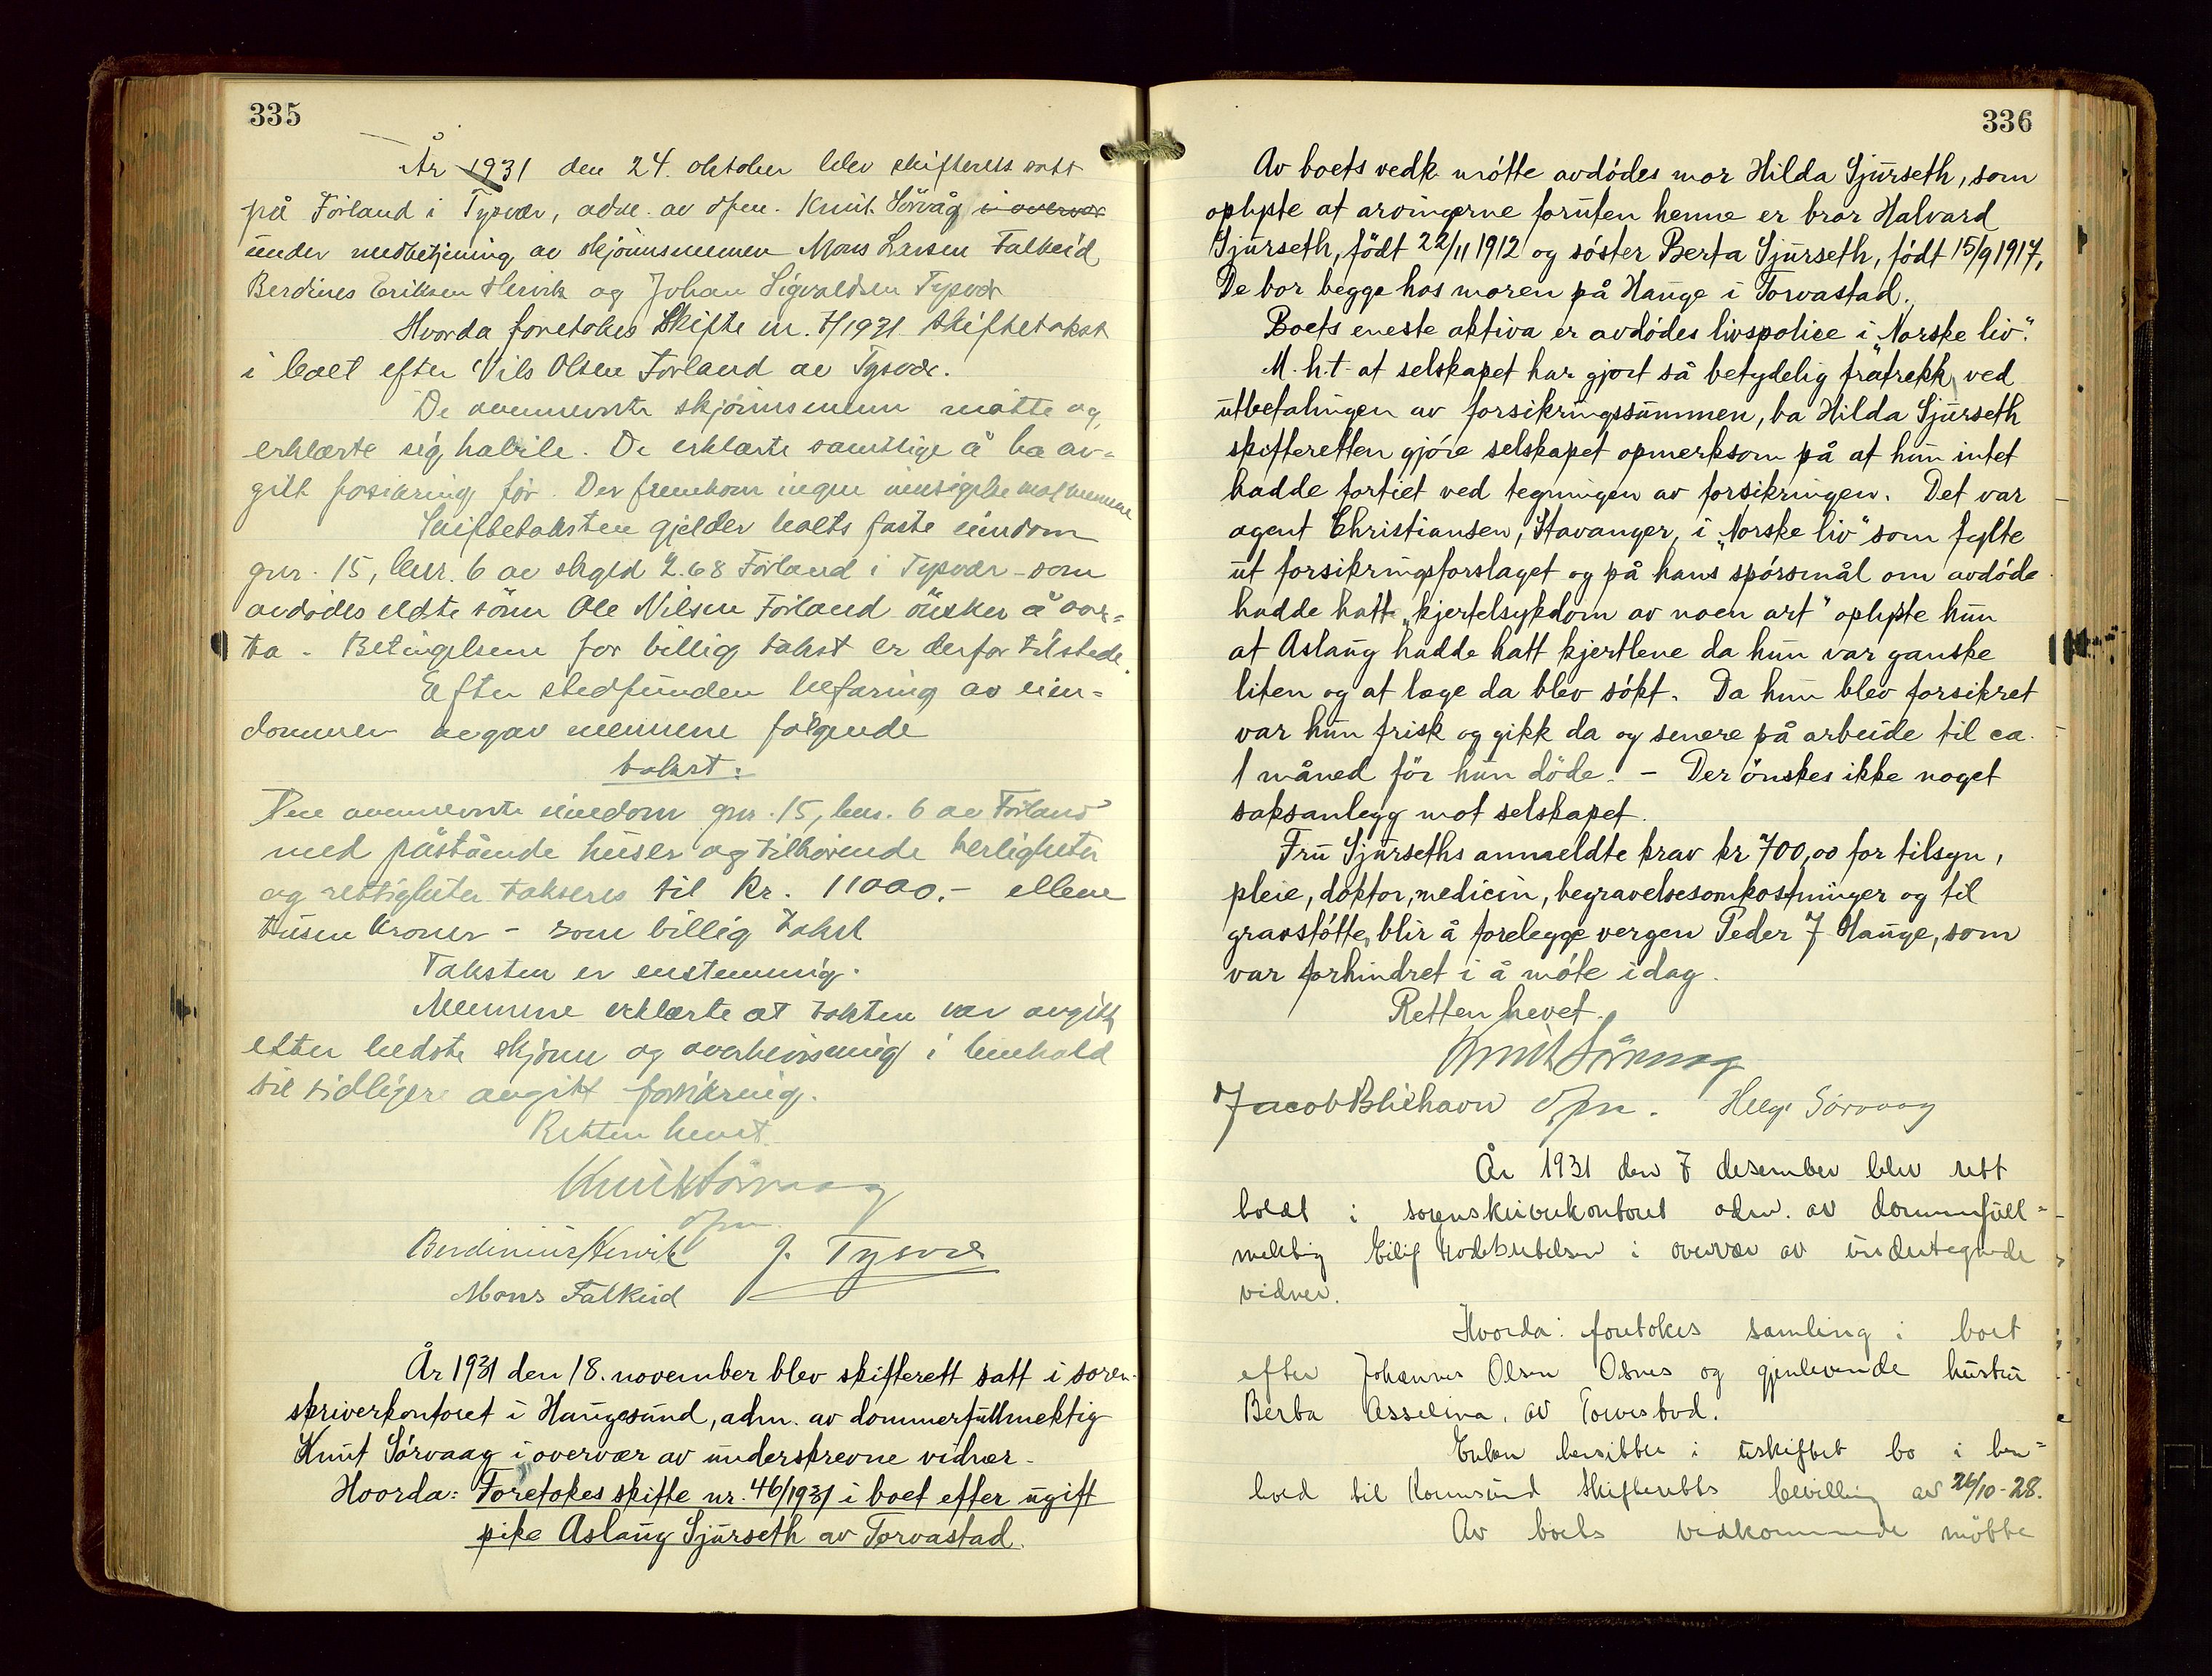 335
År 1931 den 24. oktober blev skifterett satt
på Förland i Tysvær, adm. av dfm. Knut Sörvåg i overvær
under medbetjening av skjönnsmennen Mons Larsen Falkeid
Berdines Eriksen Hervik og Johan Sigvaldsen Tysvær
Hvorda foretokes Skifte nr. 7/1931 skiftetakst
i boet efter Nils Olsen Förland av Tysvær.
De ovennevnte skjönnsmenn mötte og
erklærte sig habile. De erklærte samtlige å ha av-
gitt forsikring för. Der fremkom ingen
Skiftetaksten gjelder boets faste eiendom
gnr. 15, bnr. 6 av skyld 2.68 Förland i Tysvær - som
avdödes eldste sönn Ole Nilsen Förland önsker å over-
ta. Betingelsene for billig takst er derfor tilstede.
Efter stedfunden befaring av eien-
dommen avgav mennene fölgende
takst:
Den ovennevnte eiendom gnr. 15, bnr. 6 av Förland
med påstående huser og tilhörende herligheter
og rettigheter takseres til kr. 11000.- elleve
tusen kroner - som billig takst
Taksten er enstemmig.
Mennene erklærte at taksten var avgitt
efter bedste skjönn og overbevisning i henhold
til tidligere avgitt forsikring.
Retten hevet.
Knut Sörvaag
dfm.
Berdinius Hervik J. Tysvær
Mons Falkeid
År 1931 den 18. november blev skifterett satt i soren-
skriverkontoret i Haugesund, adm. av dommerfullmektig
Knut Sörvaag i overvær av underskrevne vidner.
Hvorda: Foretokes skifte nr. 46/1931 i boet efter ugift
pike Aslaug Sjurseth av Torvastad.
336
Av boets vedk. mötte avdödes mor Hilda Sjurseth, som
oplyste at arvingerne foruten henne er bror Halvard
Sjurseth, födt 22/11 1912 og söster Berta Sjurseth, födt 15/9 1917,
De bor begge hos moren på Hauge i Torvastad.
Boets eneste aktiva er avdödes livspolice i „Norske liv".
M.h.t. at selskapet har gjort så betydelig fratrekk ved
utbetalingen av forsikringssummen, ba Hilda Sjurseth
skifteretten gjöre selskapet opmerksom på at hun intet
hadde fortiet ved tegningen av forsikringen. Det var
agent Christiansen, Stavanger, i „Norske liv" som fylte
ut forsikringsforslaget og på hans spörsmål om avdöde
hadde hatt „kjertelsykdom av noen art" oplyste hun
at Aslaug hadde hatt kjertlene da hun var ganske
liten og at læge da blev sökt. Da hun blev forsikret
var hun frisk og gikk da og senere på arbeide til ca.
1 måned för hun döde. - Der önskes ikke noget
saksanlegg mot selskapet.
Fru Sjurseths anmeldte krav kr 700,00 for tilsyn,
pleie, doktor, medicin, begravelsesomkostninger og til
gravstötte, blir å forelegge vergen Peder J Hauge, som
var forhindret i å möte idag.
Retten hevet.
Knut Sörvaag
Jacob Bliehavn dfm. Helge Sörvaag
År 1931 den 7 desember blev rett
holdt i sorenskriverkontoret adm. av dommerfull-
mektig Eilif i overvær av undertegnede
vidner.
Hvorda: foretokes samling i boet
efter Johannes Olsen Osnes og gjenlevende hustru
Berta Asseline, av Torvestad.
Enken hensitter i uskiftet bo i hen-
hold til Karmsund Skifteretts bevilling av 26/10-28.
Av boets vedkommende mötte